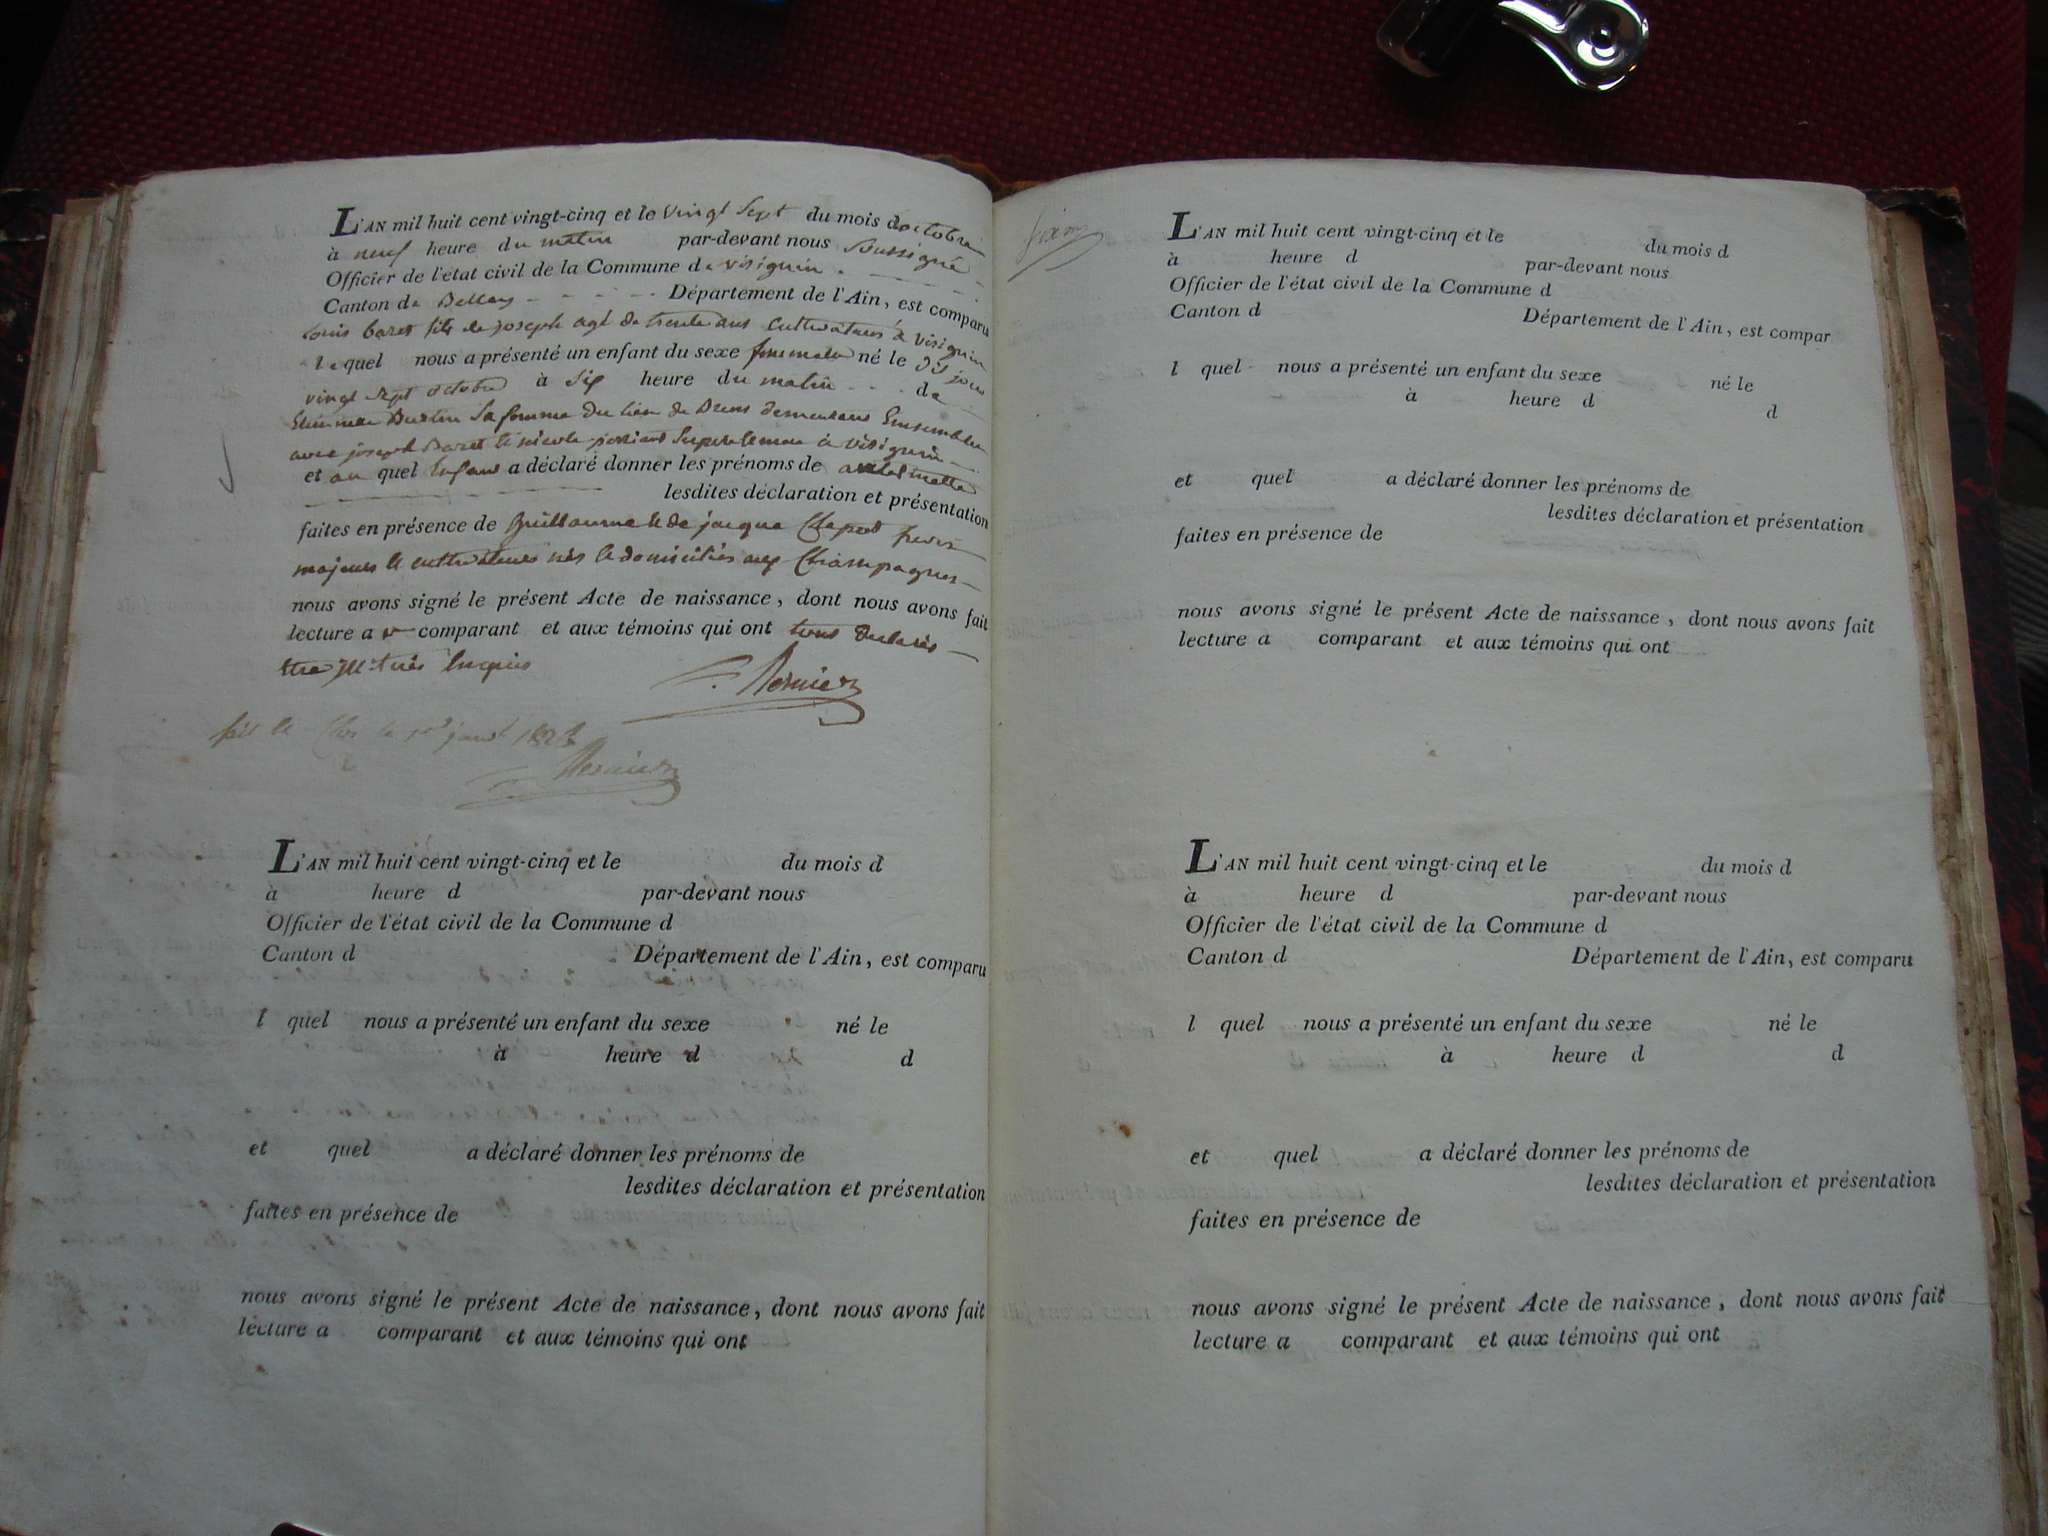 L'AN mil huit cent vingt-cinq et le vingt Sept du mois doctobre
à neuf heure du matin par-devant nous Soussigné
Officier de l'état civil de la Commune de visignin
Canton de Belley Département de l'Ain, est comparu
Louis baret fils de joseph agé de trente ans Cultivateur à visignin
lequel nous a présenté un enfant du sexe né le
vingt sept octobre à Six heure du matin de
sa femme du lieu de demeurant Ensemble
avec joseph Baret à visignin
et au quel Enfant a déclaré donner les prénoms de
lesdites déclaration et présentation
faites en présence de Guillaume et de jacque
majeurs et cultivateurs nés et domiciliés aux Champagnes
nous avons signé le présent Acte de naissance, dont nous avons fait
lecture au comparant et aux témoins qui ont tous declarés
Enquis
Mernier
le 1er janv 1826
Mernier
L'AN mil huit cent vingt-cinq et le du mois d
à heure d par-devant nous
Officier de l'état civil de la Commune d
Canton d Département de l'Ain, est comparu
l quel nous a présenté un enfant du sexe né le
à heure d d
et quel a déclaré donner les prénoms de
lesdites déclaration et présentation
faites en présence de
nous avons signé le présent Acte de naissance, dont nous avons fait
lecture a comparant et aux témoins qui ont
L'AN mil huit cent vingt-cinq et le du mois d
à heure d par-devant nous
Officier de l'état civil de la Commune d
Canton d Département de l'Ain, est compar
l quel nous a présenté un enfant du sexe né le
à heure d d
et quel a déclaré donner les prénoms de
lesdites déclaration et présentation
faites en présence de
nous avons signé le présent Acte de naissance, dont nous avons fait
lecture a comparant et aux témoins qui ont
L'AN mil huit cent vingt-cinq et le du mois d
à heure d par-devant nous
Officier de l'état civil de la Commune d
Canton d Département de l'Ain, est comparu
l quel nous a présenté un enfant du sexe né le
à heure d d
et quel a déclaré donner les prénoms de
lesdites déclaration et présentation
faites en présence de
nous avons signé le présent Acte de naissance, dont nous avons fait
lecture a comparant et aux témoins qui ont